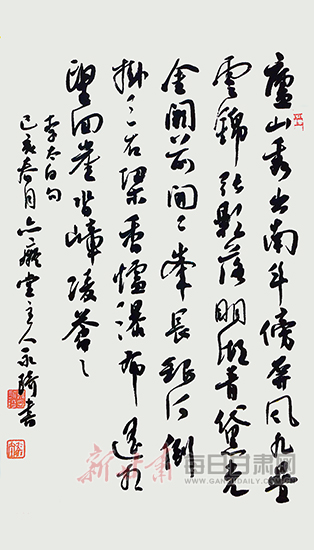 廬山秀出南斗傍屏風九疊
雲錦張影落明湖青黛光
金闕前開二峯長銀河倒
掛三石梁香爐瀑布遥相
望回崖沓嶂凌蒼蒼
李太白句
己亥春月六疑堂主人永琦書
新甘肃
每日甘肃网
WWW.GANSUDAILY.COM.CN